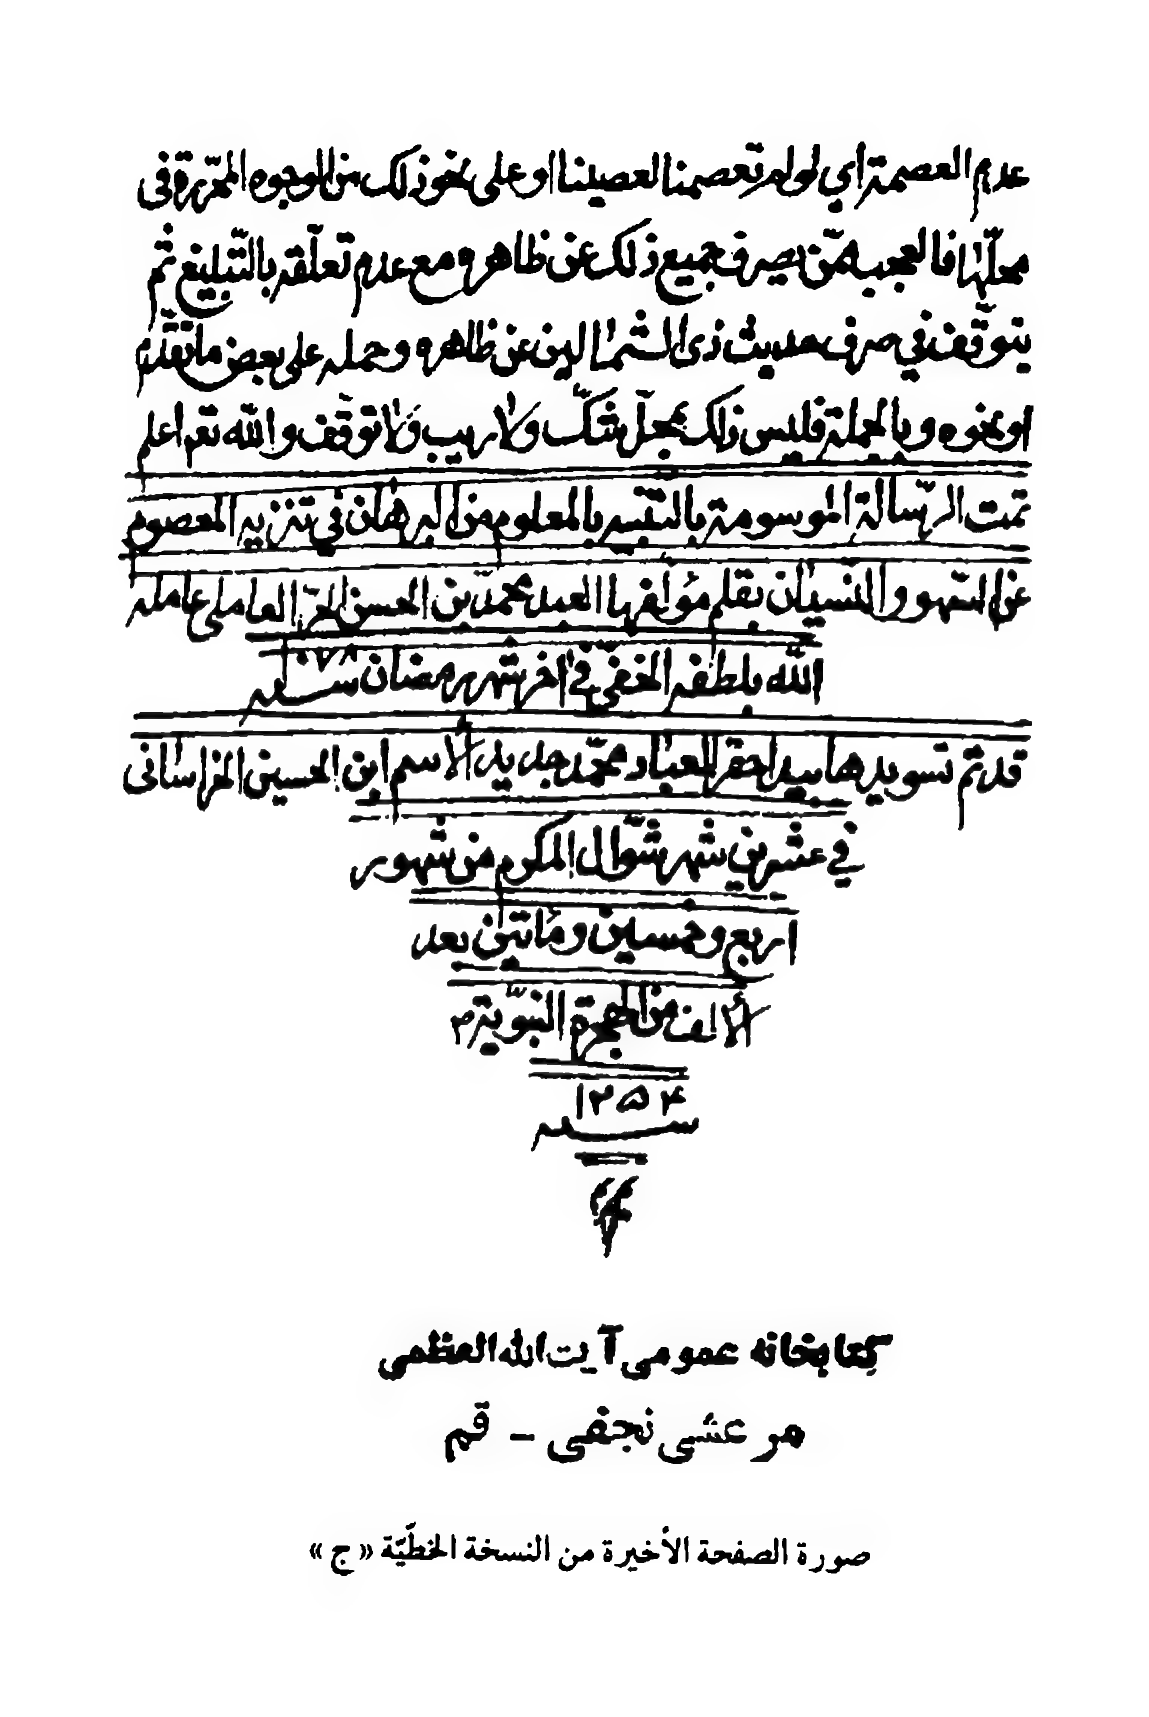 عدم العصمة أي لو لم تعصمنا لعصينا او على نحو ذلك من الوجوه المقرّرة في
محلّها فالعجب ممّن يصرف جميع ذلك عن ظاهره مع عدم تعلّقه بالتّبليغ ثم
يتوقّف في صرف حديث ذي الشمالين عن ظاهره وحمله على بعض ما تقدّم
او نحوه وبالجملة فليس ذلك بمحلّ شكّ ولا ريب ولا توقّف والله تعم اعلم
تمت الرّسالة الموسومة بالتنبيه بالمعلوم من البرهان في تنزيه المعصوم
عن السّهو والنّسيان بقلم مؤلّفها العبد محمّد بن الحسن الحرّ العاملي عامله
الله بلطفه الخفيّ في اخر شهر رمضان سنه ١٠٧٨
قد تمّ تسويدها بيد احقر العباد محمّد جديد الأسم ابن الحسين الخراسانى
في عشرين شهر شوّال المكرم من شهور
اربع وخمسين ومأتين بعد
الألف من الهجرة النبويّة
۱۲۵۴
سنه
كتابخانه عمومى آيت الله العظمى
مرعشى نجفى - قم
صورة الصفحة الأخيرة من النسخة الخطّيّة « ج »